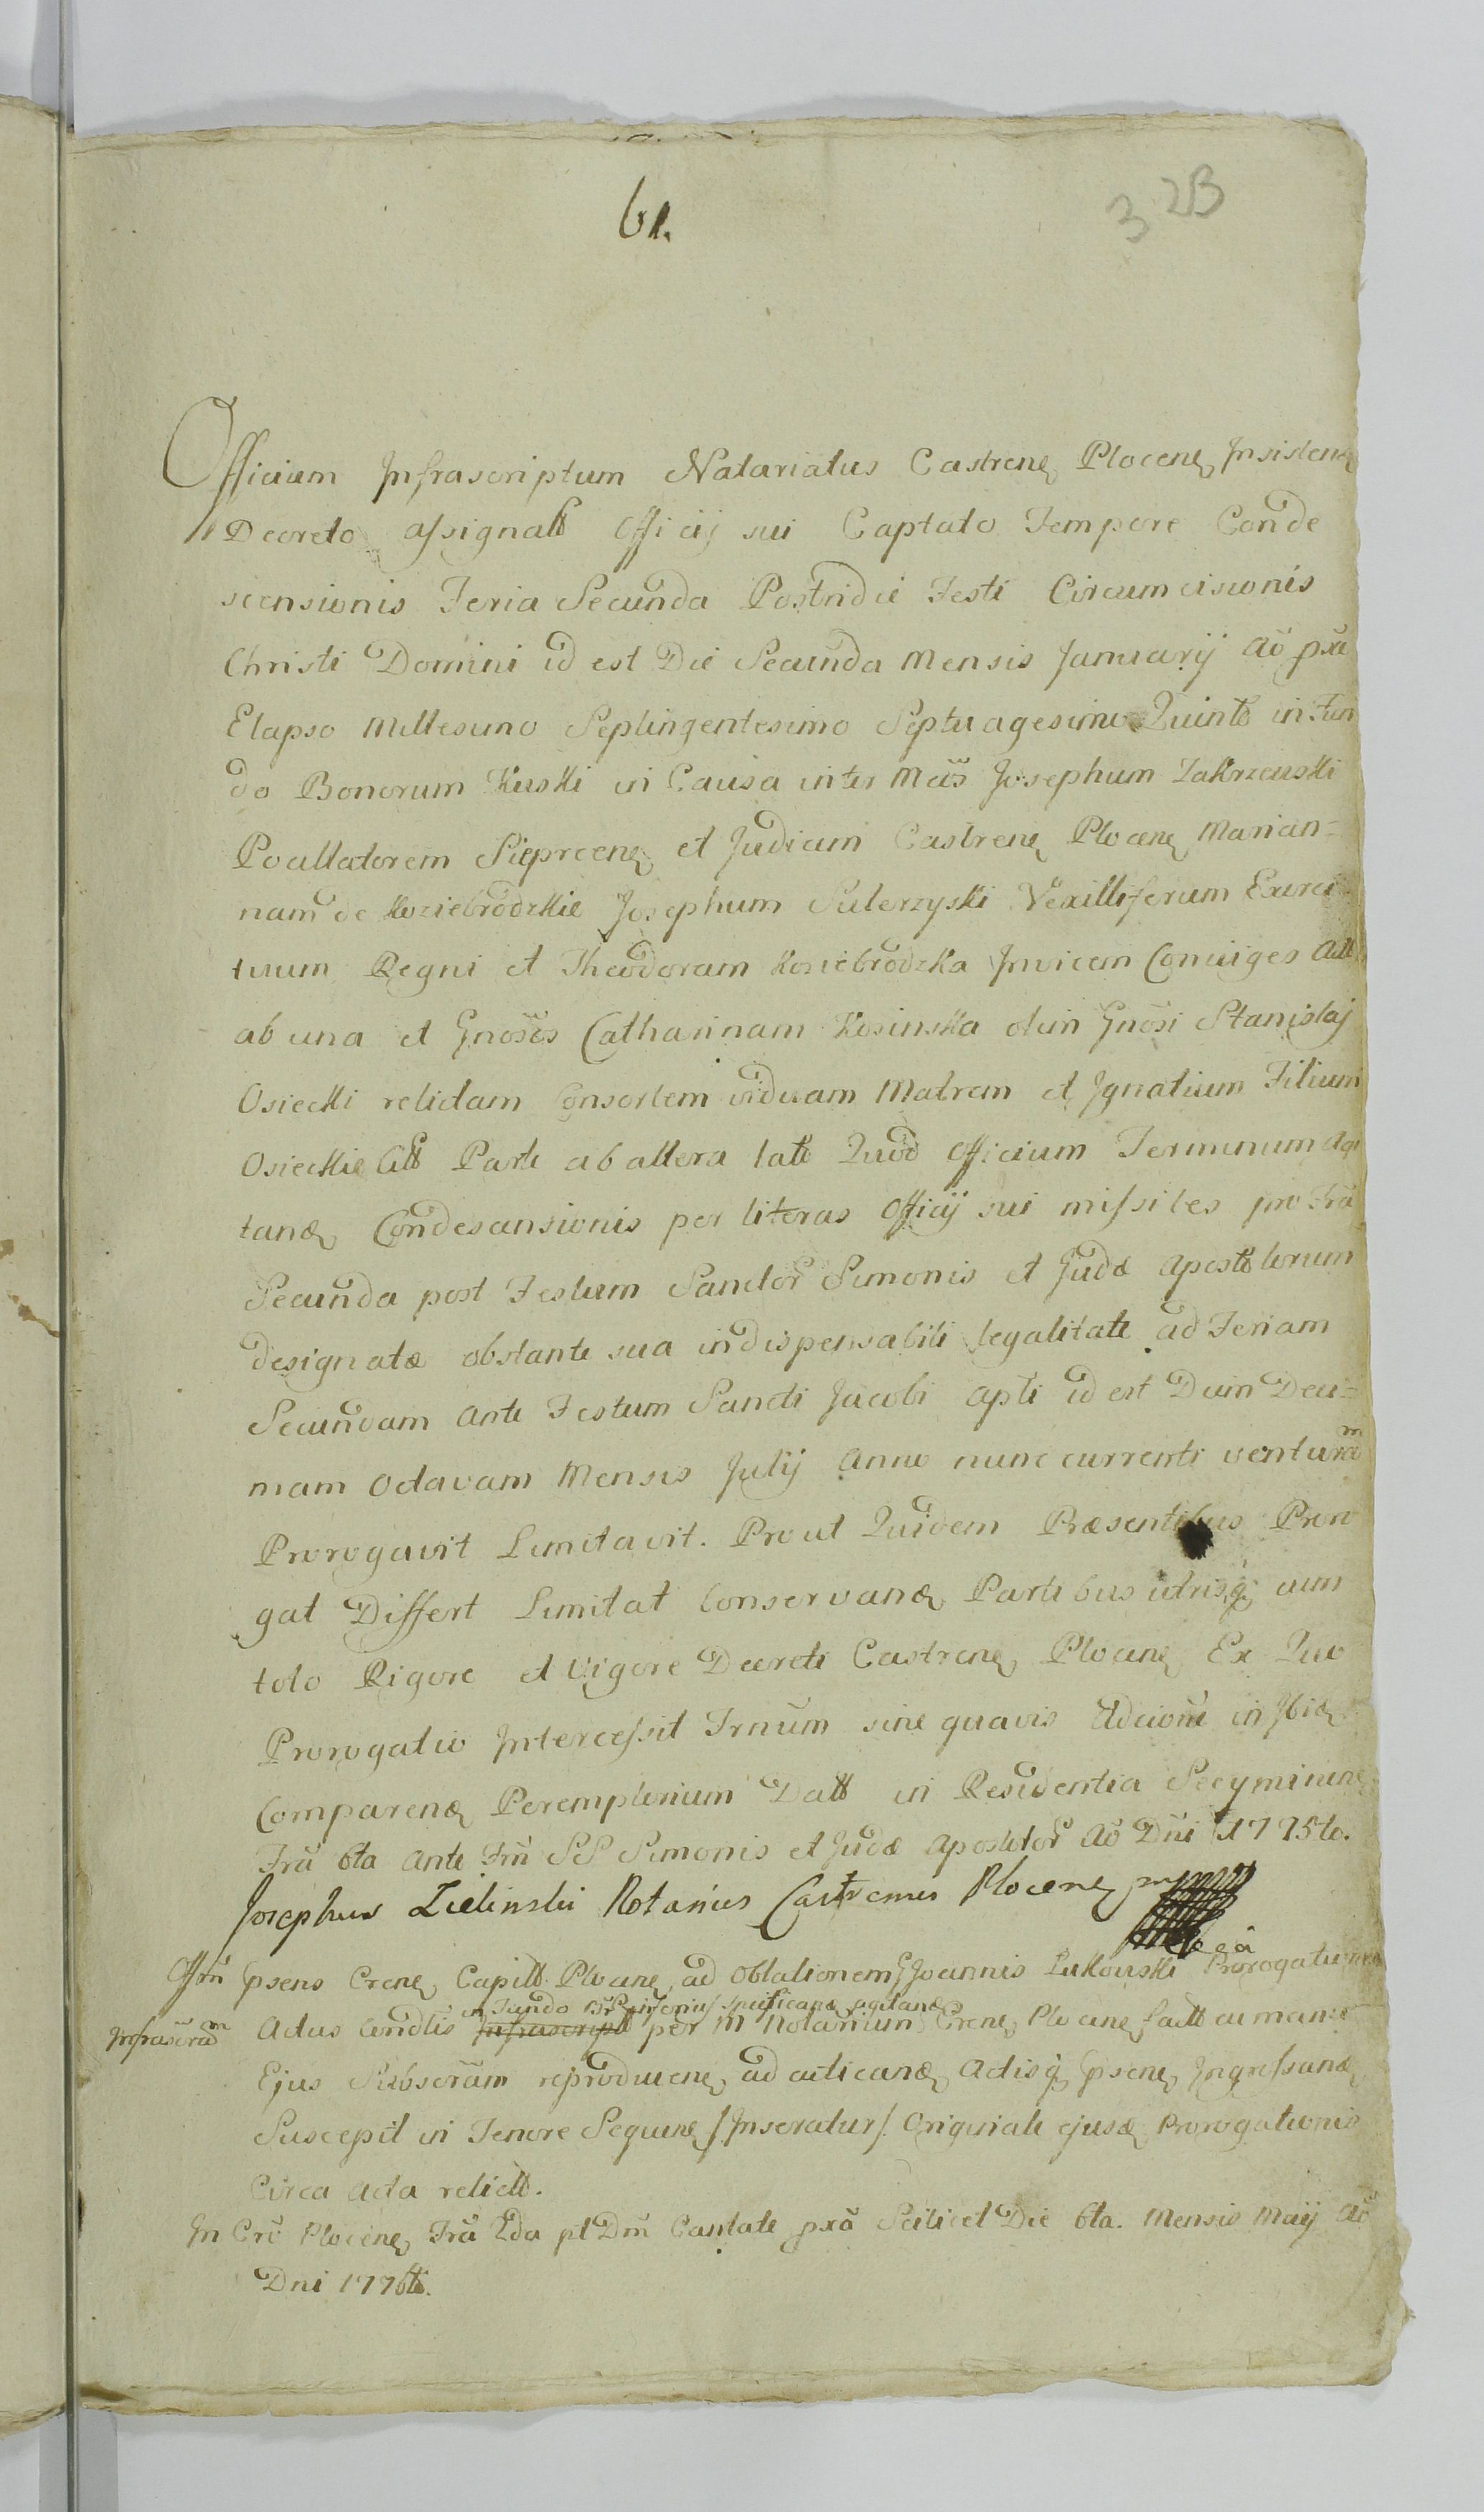 61.
323
Officium Infrascriptum Notariatus Castrens Plocens Insistens
Decreto assignatt Officij sui Captato Tempore Conde
scensionis Feria Secunda Postridie Festi Circumcisionis
Christi Domini id est Die Secunda Mensis Januarij Aõ pxe
Elapso Millesimo Septingentesimo Septuagesimo Quinto in Fun
do Bonorum Kuski in Causa inter Mcos Josephum Zakrzewski
Pocillatorem Sieprcens et Judicem Castrens Plocens Marian=
nam de Koziebrodzkie Josephum Sulerzyski Vexilliferum Exerci=
tuum Regni et Theodoram Koziebrodzka Invicem Coniuges Actt
ab una et Gnosos Catharinam Kosinska olim Gnosi Stanislaj
Osiecki relictam Consortem viduam Matrem et Ignatium Filium
Osieckie Citt Parte ab altera latt Quod Officium Terminum Agi
tand Condescensionis per literas Officij sui missiles pro Fra
Secunda post Festum Sanctor Simonis et Judæ Apostolorum
designatæ obstante sua indispensabili legalitate ad Feriam
Secundam Ante Festum Sancti Jacobi Apli id est Diem Deci=
mam Octavam Mensis Julij Anno nunc currenti venturam
Prorogavit Limitavit. Prout Quidem Præsentibus Proro
gat Differt Limitat Conservand Partibus utrisq cum
toto Rigore et Vigore Decreti Castrens Plocens Ex Quo
Prorogatio Intercessit Trnum sine quavis Adcione in Ibid
Comparend Peremptorium Datt in Residentia Secymin
Fra 6ta Ante Fm SS Simonis et Judæ Apostolor Aõ Dni 1775to.
Josephus Zielinski Notarius Castrensis Plocens mp
Offm psens Crens Capitt Plocens ad Oblationem G Joannis Lukowski Prorogationem
in Fundo
Infrascram Actus Condlis Infrascript per M Notarium Crens Plocens factt cu manu
Ejus Subscram reproducens ad acticand Actisq psens Ingrossand
Suscepit in Tenore Sequens /Inseratur/. Originali ejusd Prorogationis
Circa Acta relictt.
In Cro Plocens Fra 2da pt Dm Cantate pxa Scilicet Die 6ta. Mensis Maij Aõ
Dni 1776to.